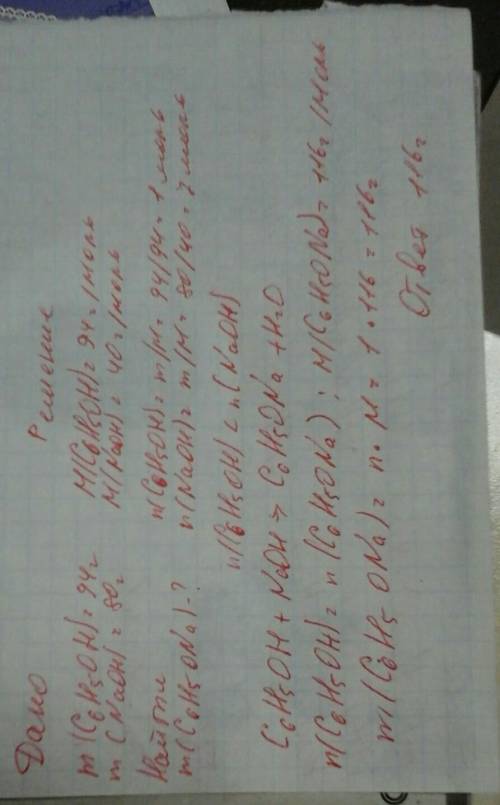 Дано
m(C6H5OH)=94г
m(NaOH)=80г
Найти
m(C6H5ONa)-?
Решение
M(C6H5OH)=94г/моль
M(NaOH)=40г/моль
n(C6H5OH)=m/M=94/94=1моль
n(NaOH)=m/M=80/40=2моль
n(C6H5OH)<n(NaOH)
C6H5OH+NaOH→C6H5ONa+H2O
n(C6H5OH)=n(C6H5ONa); M(C6H5ONa)=116г/моль
m(C6H5ONa)=n•M=1•116=116г
Ответ 116г